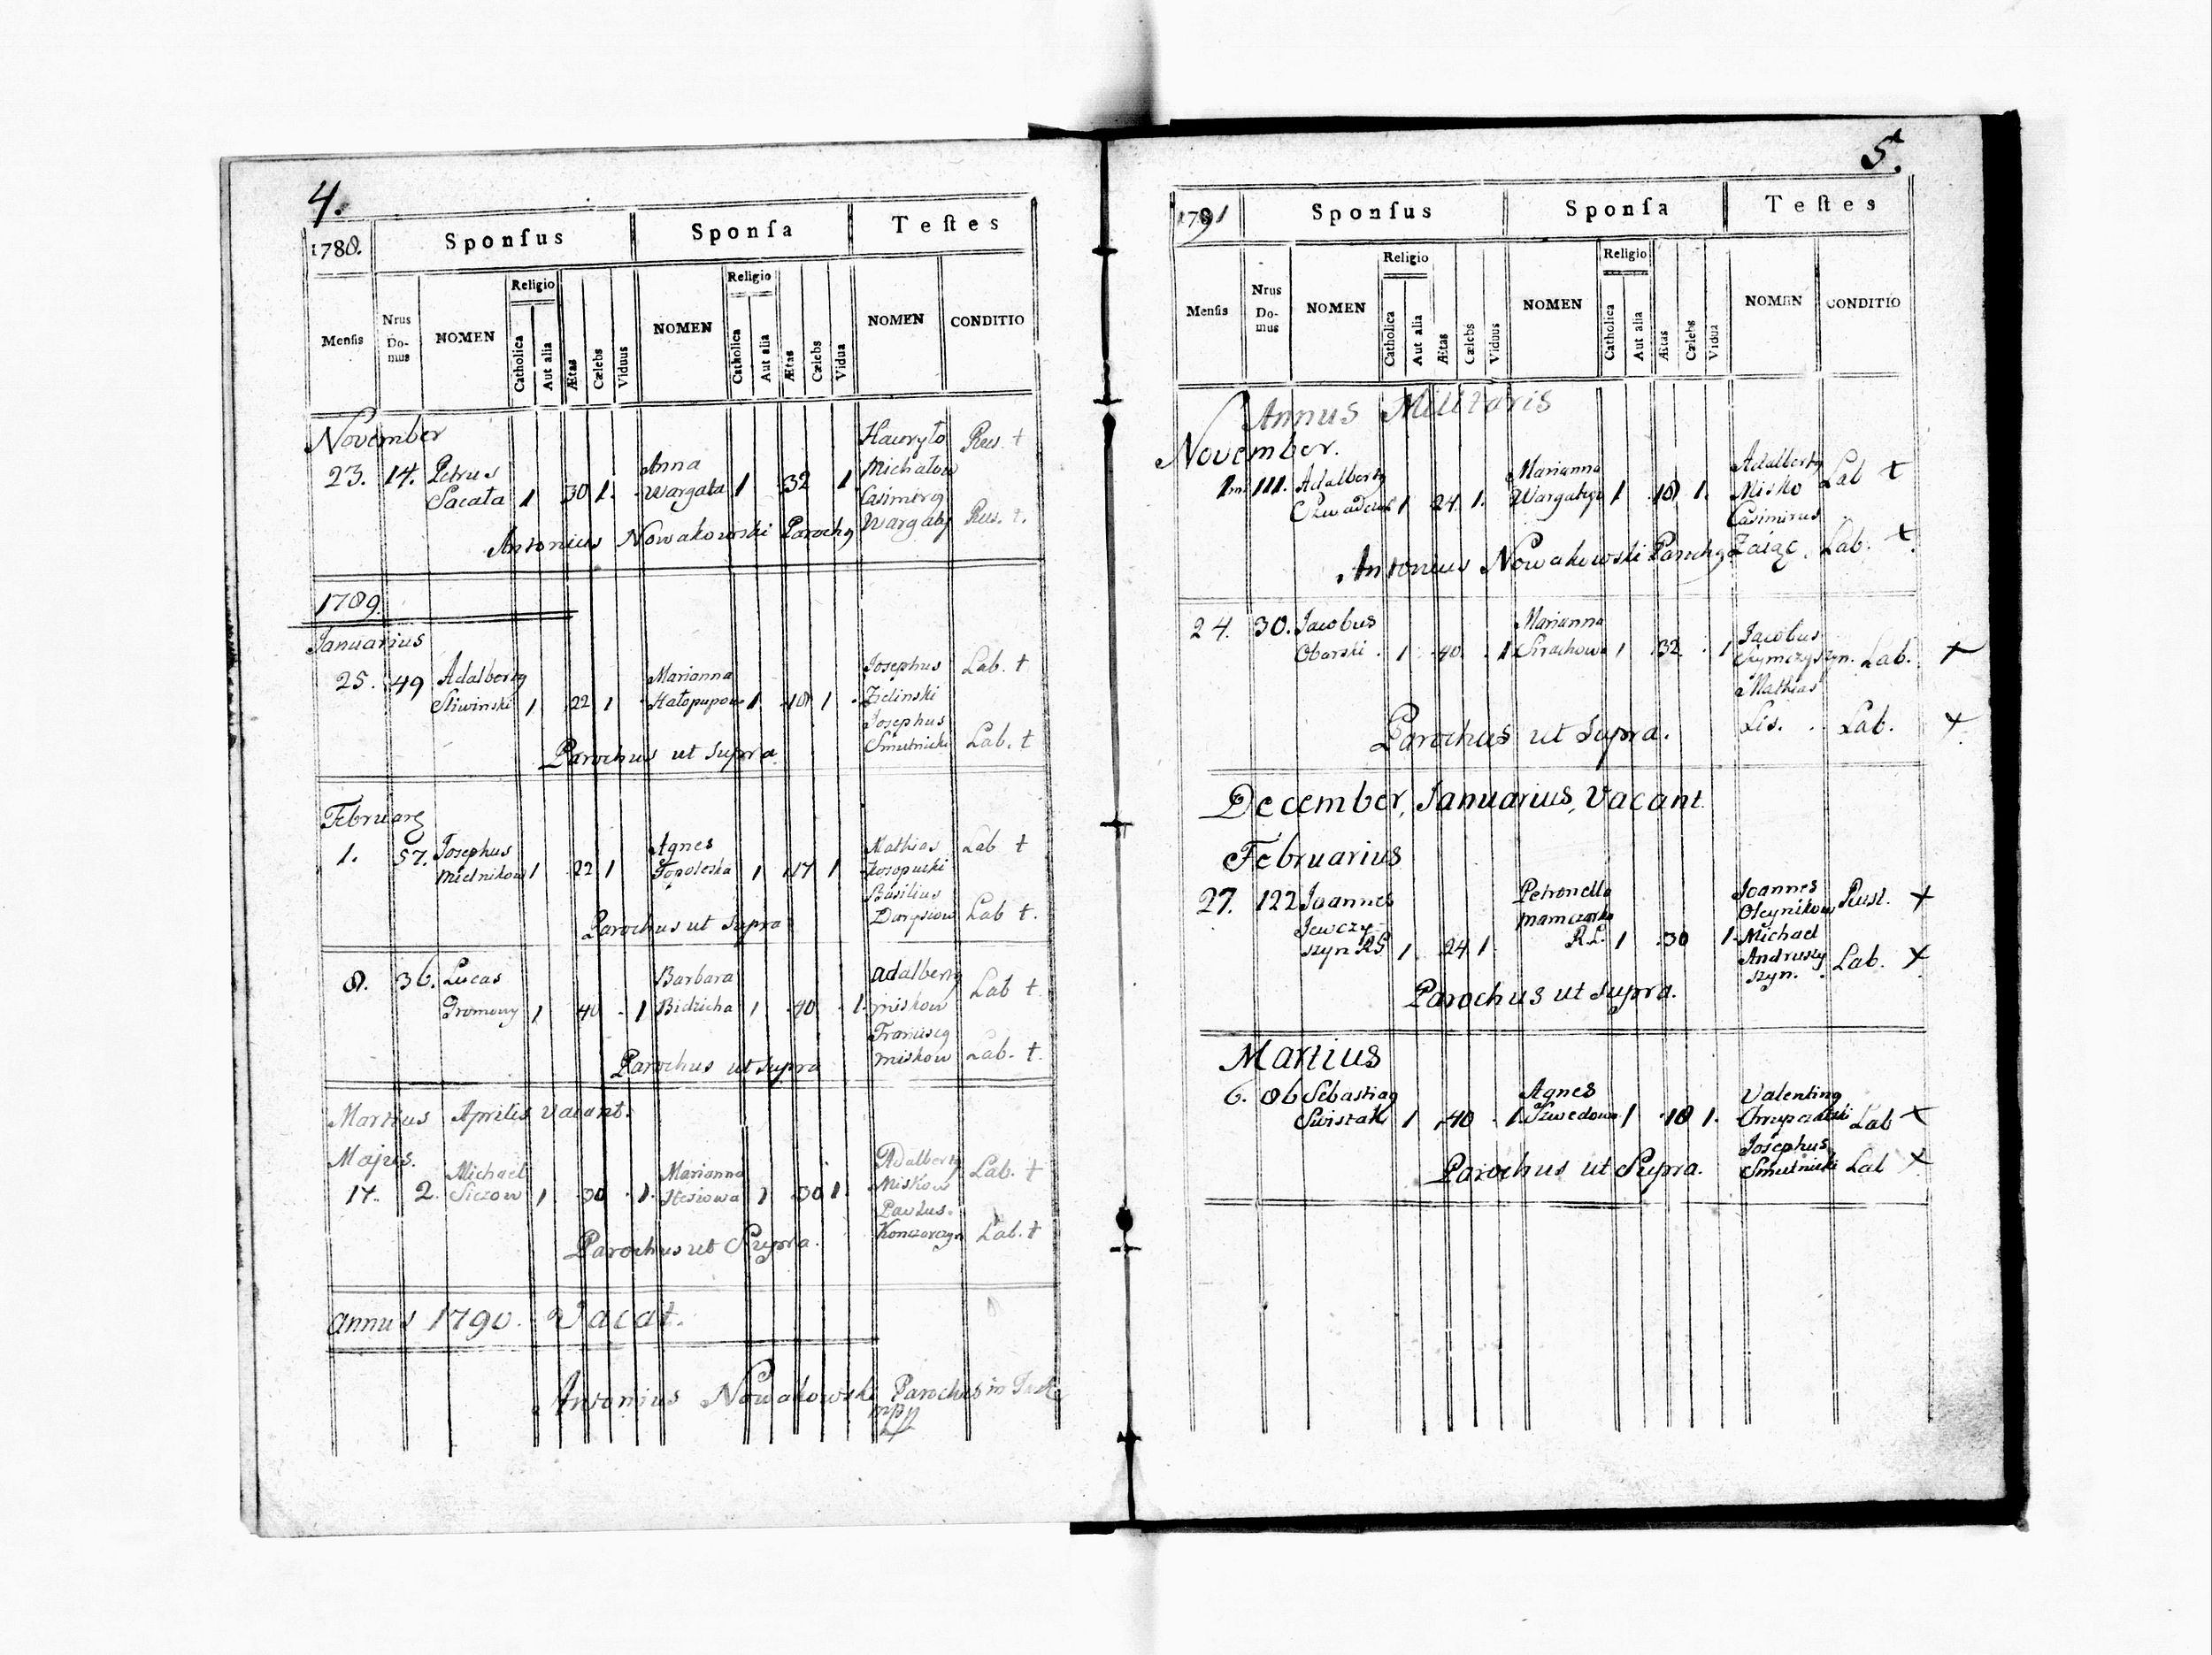 4.
1788. Sponſus Sponſa Teſtes
Menſis Nrus Do-mus NOMEN Religio Catholica Aut alia Ætas Cælebs Viduus NOMEN Religio Catholica Aut alia Ætas Cælebs Vidua NOMEN CONDITIO
November
Hawryło Rus. †
23. 14. Petrus Anna Michałow
Sacała 1 30 1. Wargała 1 32 1 Casimirg
Wargały Rus. †.
Antonius Nowakowski Parochg
1789.
Januarius
25. 49 Adalbertg Marianna Josephus Lab. †
Sliwinski 1 22 1 Hałopupow 1 18 1 Zielinski
Josephus
Smutnicki Lab. †
Parochus ut supra
Februarg
1. 57. Josephus Agnes Mathias Lab †
Mielnikow 1 22 1 Topoleska 1 17 1 Kosopucki
Basilius
Darysiow Lab †.
Parochus ut supra
8. 36. Lucas Barbara Adalbertg Lab †
Gromony 1 40 1 Bidzicha 1 40 1. Miskow
Franciscg
Miskow Lab. †.
Parochus ut supra
Martius Aprilis vacant.
Majus.
17. 2. Michael Marianna Adalbertg Lab. †
Siczow 1 30 1. Stesiowa 1 30 1 Miskow
Paulus.
Konczarczyn Lab. †
Parochus ut Supra.
Annus 1790. Vacat.
Antonius Nowakowski Parochus in
mpp
5.
1791 Sponſus Sponſa Teſtes
Menſis Nrus Do-mus NOMEN Religio Catholica Aut alia Ætas Cælebs Viduus NOMEN Religio Catholica Aut alia Ætas Cælebs Vidua NOMEN CONDITIO
Annus Militaris
November.
1ma 111. Adalbertg Marianna Adalbertg Lab †
1 24 1. 1 18 1. Misko
Casimirus
Zaiąc. Lab. †.
Antonius Nowakowski Parochg
24. 30. Jacobus Marianna Jacobus
Obarski 1 40. 1 Sirachowa 1 32 1 Szymczyszyn. Lab. †
Mathias
Lis. Lab. †.
Parochus ut supra.
December, Januarius, Vacant.
Februarius
27. 122 Joannes Petronella Joannes Rust. †
Jewczy- Mamczarka Oleynikow
szyn RG 1 24 1. RL. 1 30 1. Michael
Andruszy
szyn. Lab. †
Parochus ut supra.
Martius
6. 86 Sebastiag Agnes Valenting
Swistak 1 40 1. Szwedowa 1 18 1. Lab †
Josephus
Smutnicki Lab †
Parochus ut Supra.